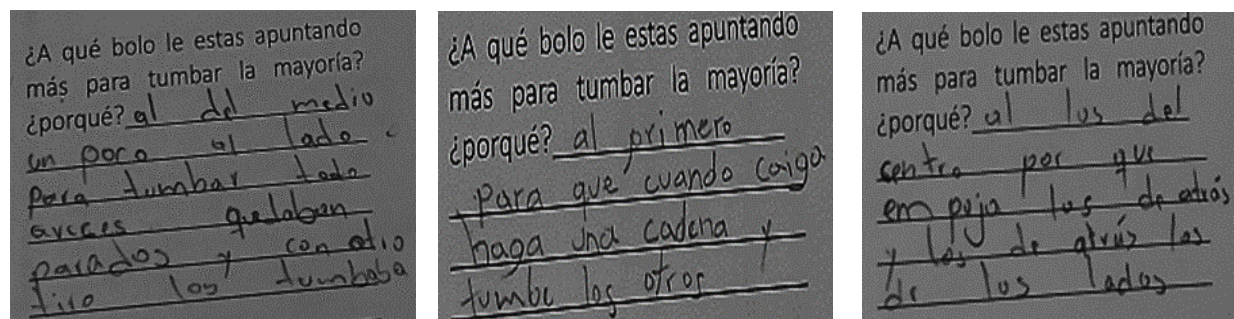 ¿A qué bolo le estas apuntando
más para tumbar la mayoría?
¿porqué? al del medio
un poco al lado
para tumbar todo
aveces quedaban
parados y con otro
tiro los tumbaba
¿A qué bolo le estas apuntando
más para tumbar la mayoría?
¿porqué? al primero
para que cuando caiga
haga una cadena y
tumbe los otros
¿A qué bolo le estas apuntando
más para tumbar la mayoría?
¿porqué? al los del
centro por que
empuja los de atrás
y los de atrás los
de los lados